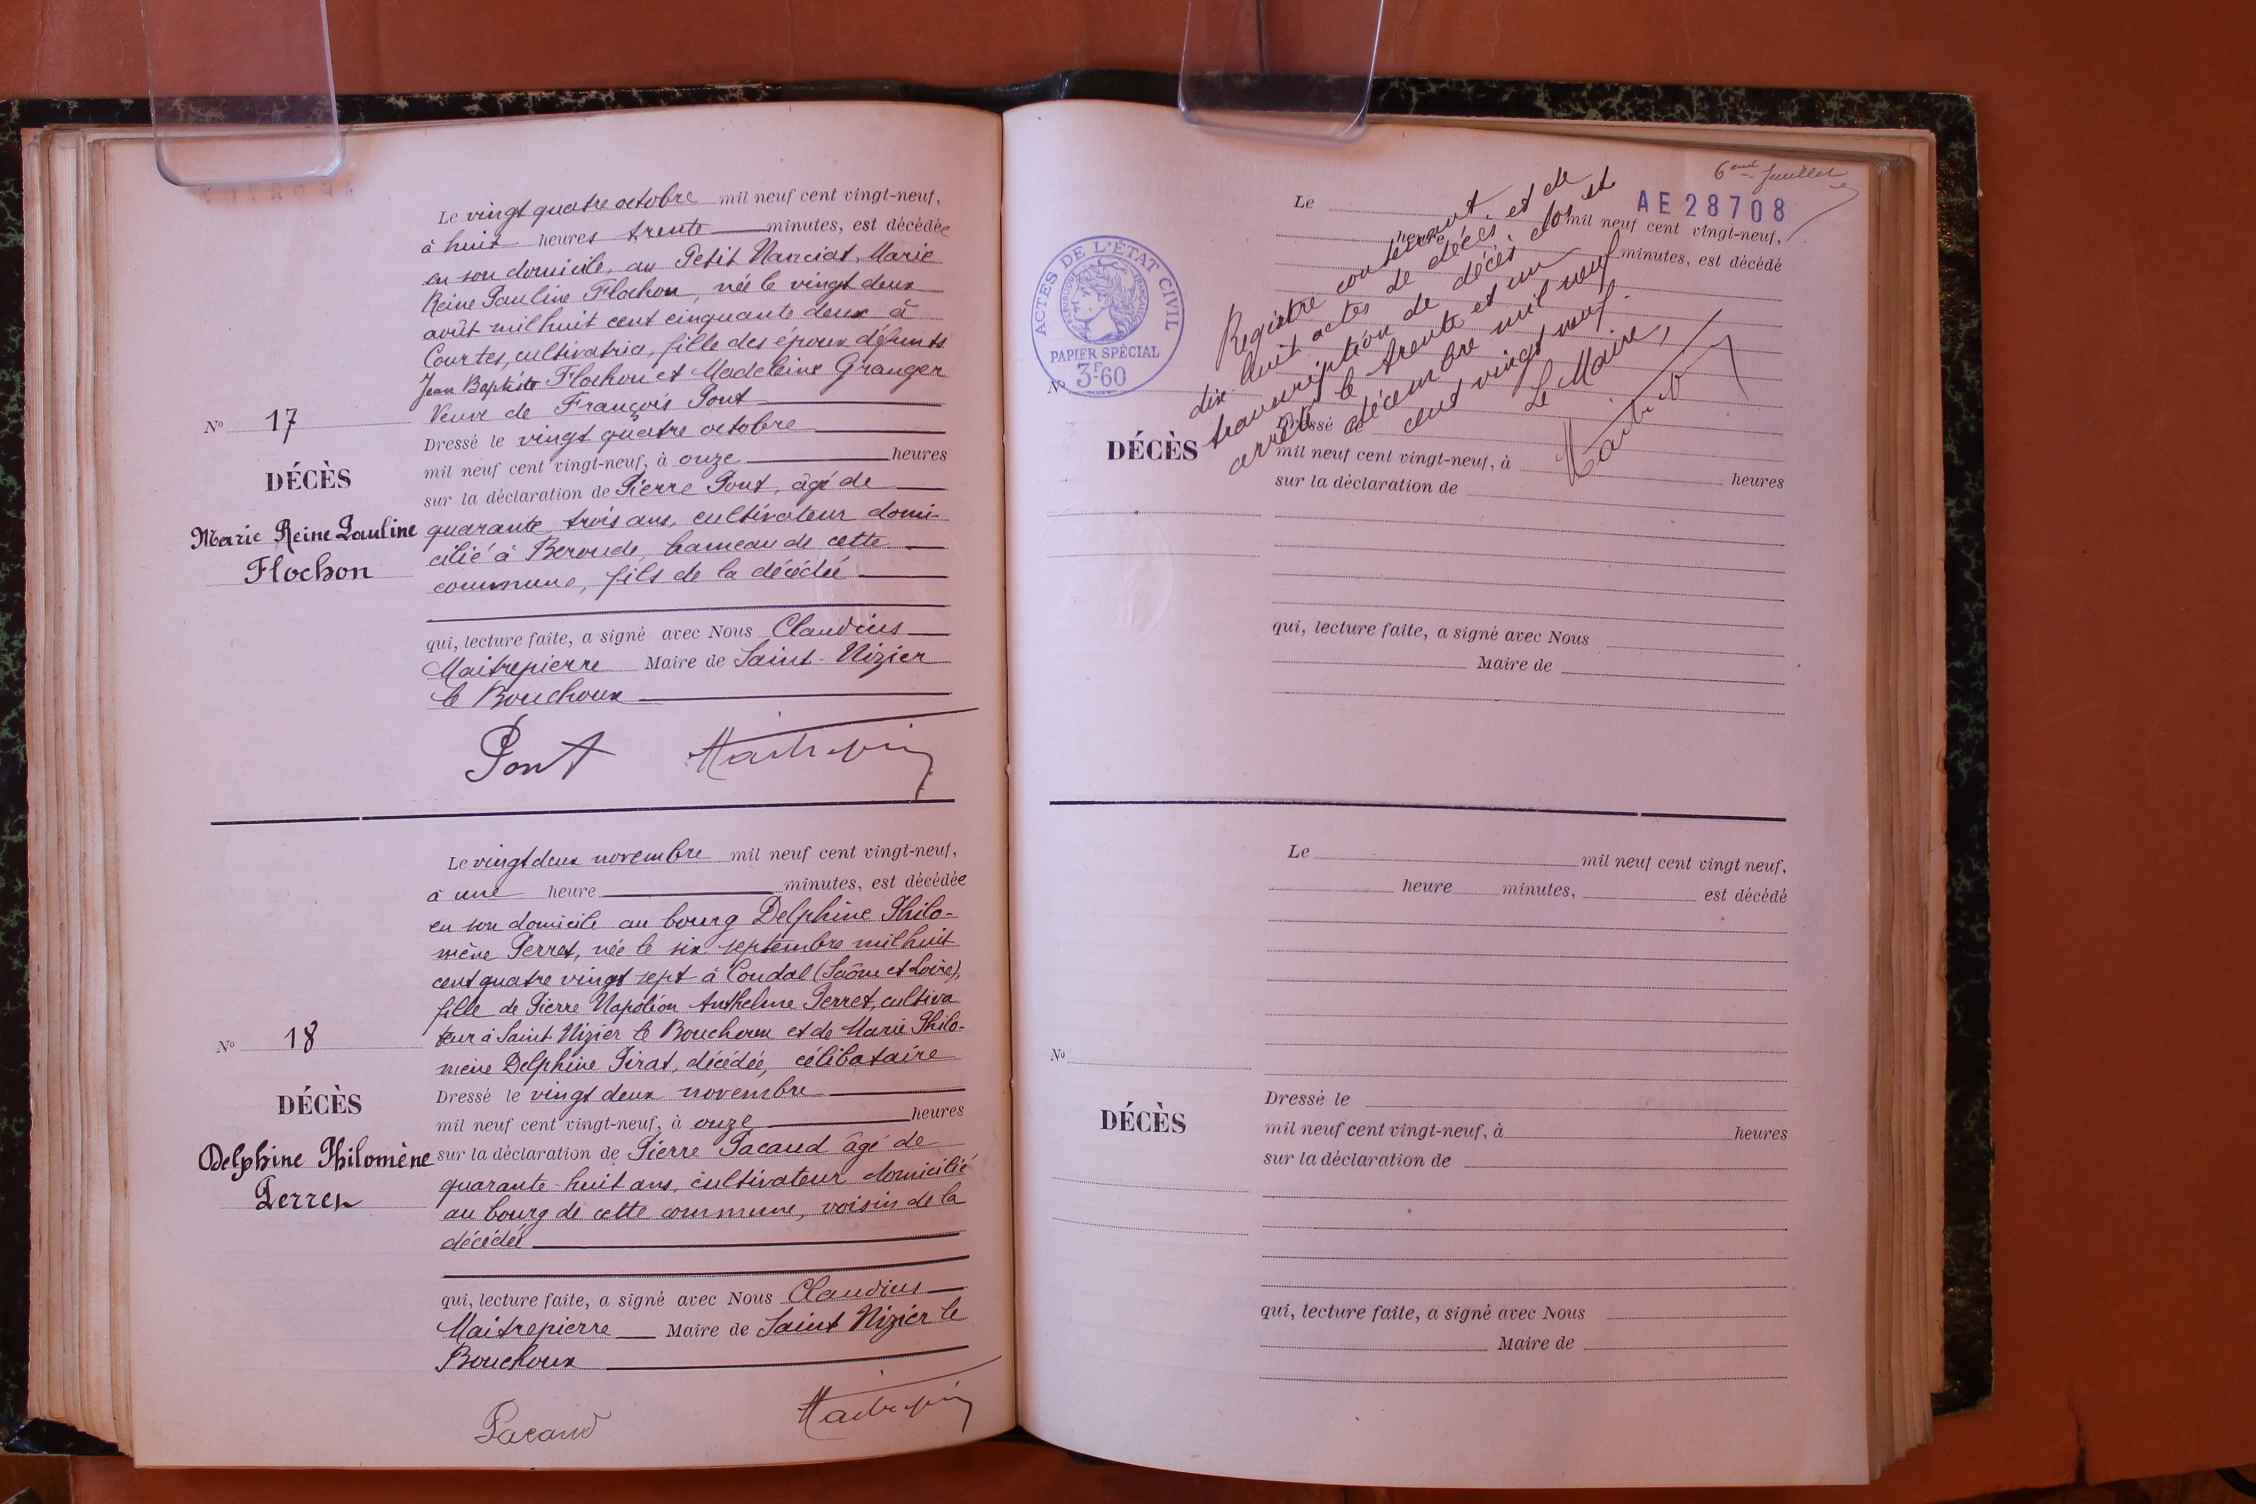 Le vingt quatre octobre mil neuf cent vingt-neuf,
à huit heures trente minutes, est décédée
en son domicile, au Petit Nanciat, Marie
Reine Pauline Flochon, née le vingt deux
août mil huit cent cinquante deux à
Courtes, cultivatrice, fille des époux défunts
Jean Baptiste Flochon et Madeleine Granger
Veuve de François Pont
Nº 17
Dressé le vingt quatre octobre
mil neuf cent vingt-neuf, à onze heures
DÉCÈS
sur la déclaration de Pierre Pont, âgé de
Marie Reine Pauline
quarante trois ans, cultivateur domi-
cilié à Beroude, hameau de cette
Flochon
commune, fils de la décédée
qui, lecture faite, a signé avec Nous Claudius
Maitrepierre Maire de Saint-Nizier
le Bouchoux
Pont Maitrepierre
Le vingt deux novembre mil neuf cent vingt-neuf,
à une heure minutes, est décédée
en son domicile au bourg Delphine Philo-
mène Perret, née le six septembre mil huit
cent quatre vingt sept à Condal (Saône et Loire),
fille de Pierre Napoléon Anthelme Perret, cultiva
teur à Saint Nizier le Bouchoux et de Marie Philo-
Nº 18
mène Delphine Pirat, décédée, célibataire
Dressé le vingt deux novembre
DÉCÈS
mil neuf cent vingt-neuf, à onze heures
Delphine Philomène
sur la déclaration de Pierre Pacaud âgé de
quarante-huit ans, cultivateur domicilié
Perret
au bourg de cette commune, voisin de la
décédée
qui, lecture faite, a signé avec Nous Claudius
Maitrepierre Maire de Saint Nizier le
Bouchoux
Pacaud Maitrepierre
6eme feuillet
AE28708
Le mil neuf cent vingt-neuf,
heure minutes, est décédé
ACTES DE L'ÉTAT CIVIL
PAPIER SPÉCIAL
3F-60
Registre contenant
dix huit actes de décès, et de
transcription de décès clos et
arrêté le trente et un
décembre mil neuf
cent vingt neuf.
Le Maire,
Maitrepierre
Nº
Dressé le
DÉCÈS
mil neuf cent vingt-neuf, à heures
sur la déclaration de
qui, lecture faite, a signé avec Nous
Maire de
Le mil neuf cent vingt neuf,
heure minutes, est décédé
Nº
Dressé le
DÉCÈS
mil neuf cent vingt-neuf, à heures
sur la déclaration de
qui, lecture faite, a signé avec Nous
Maire de